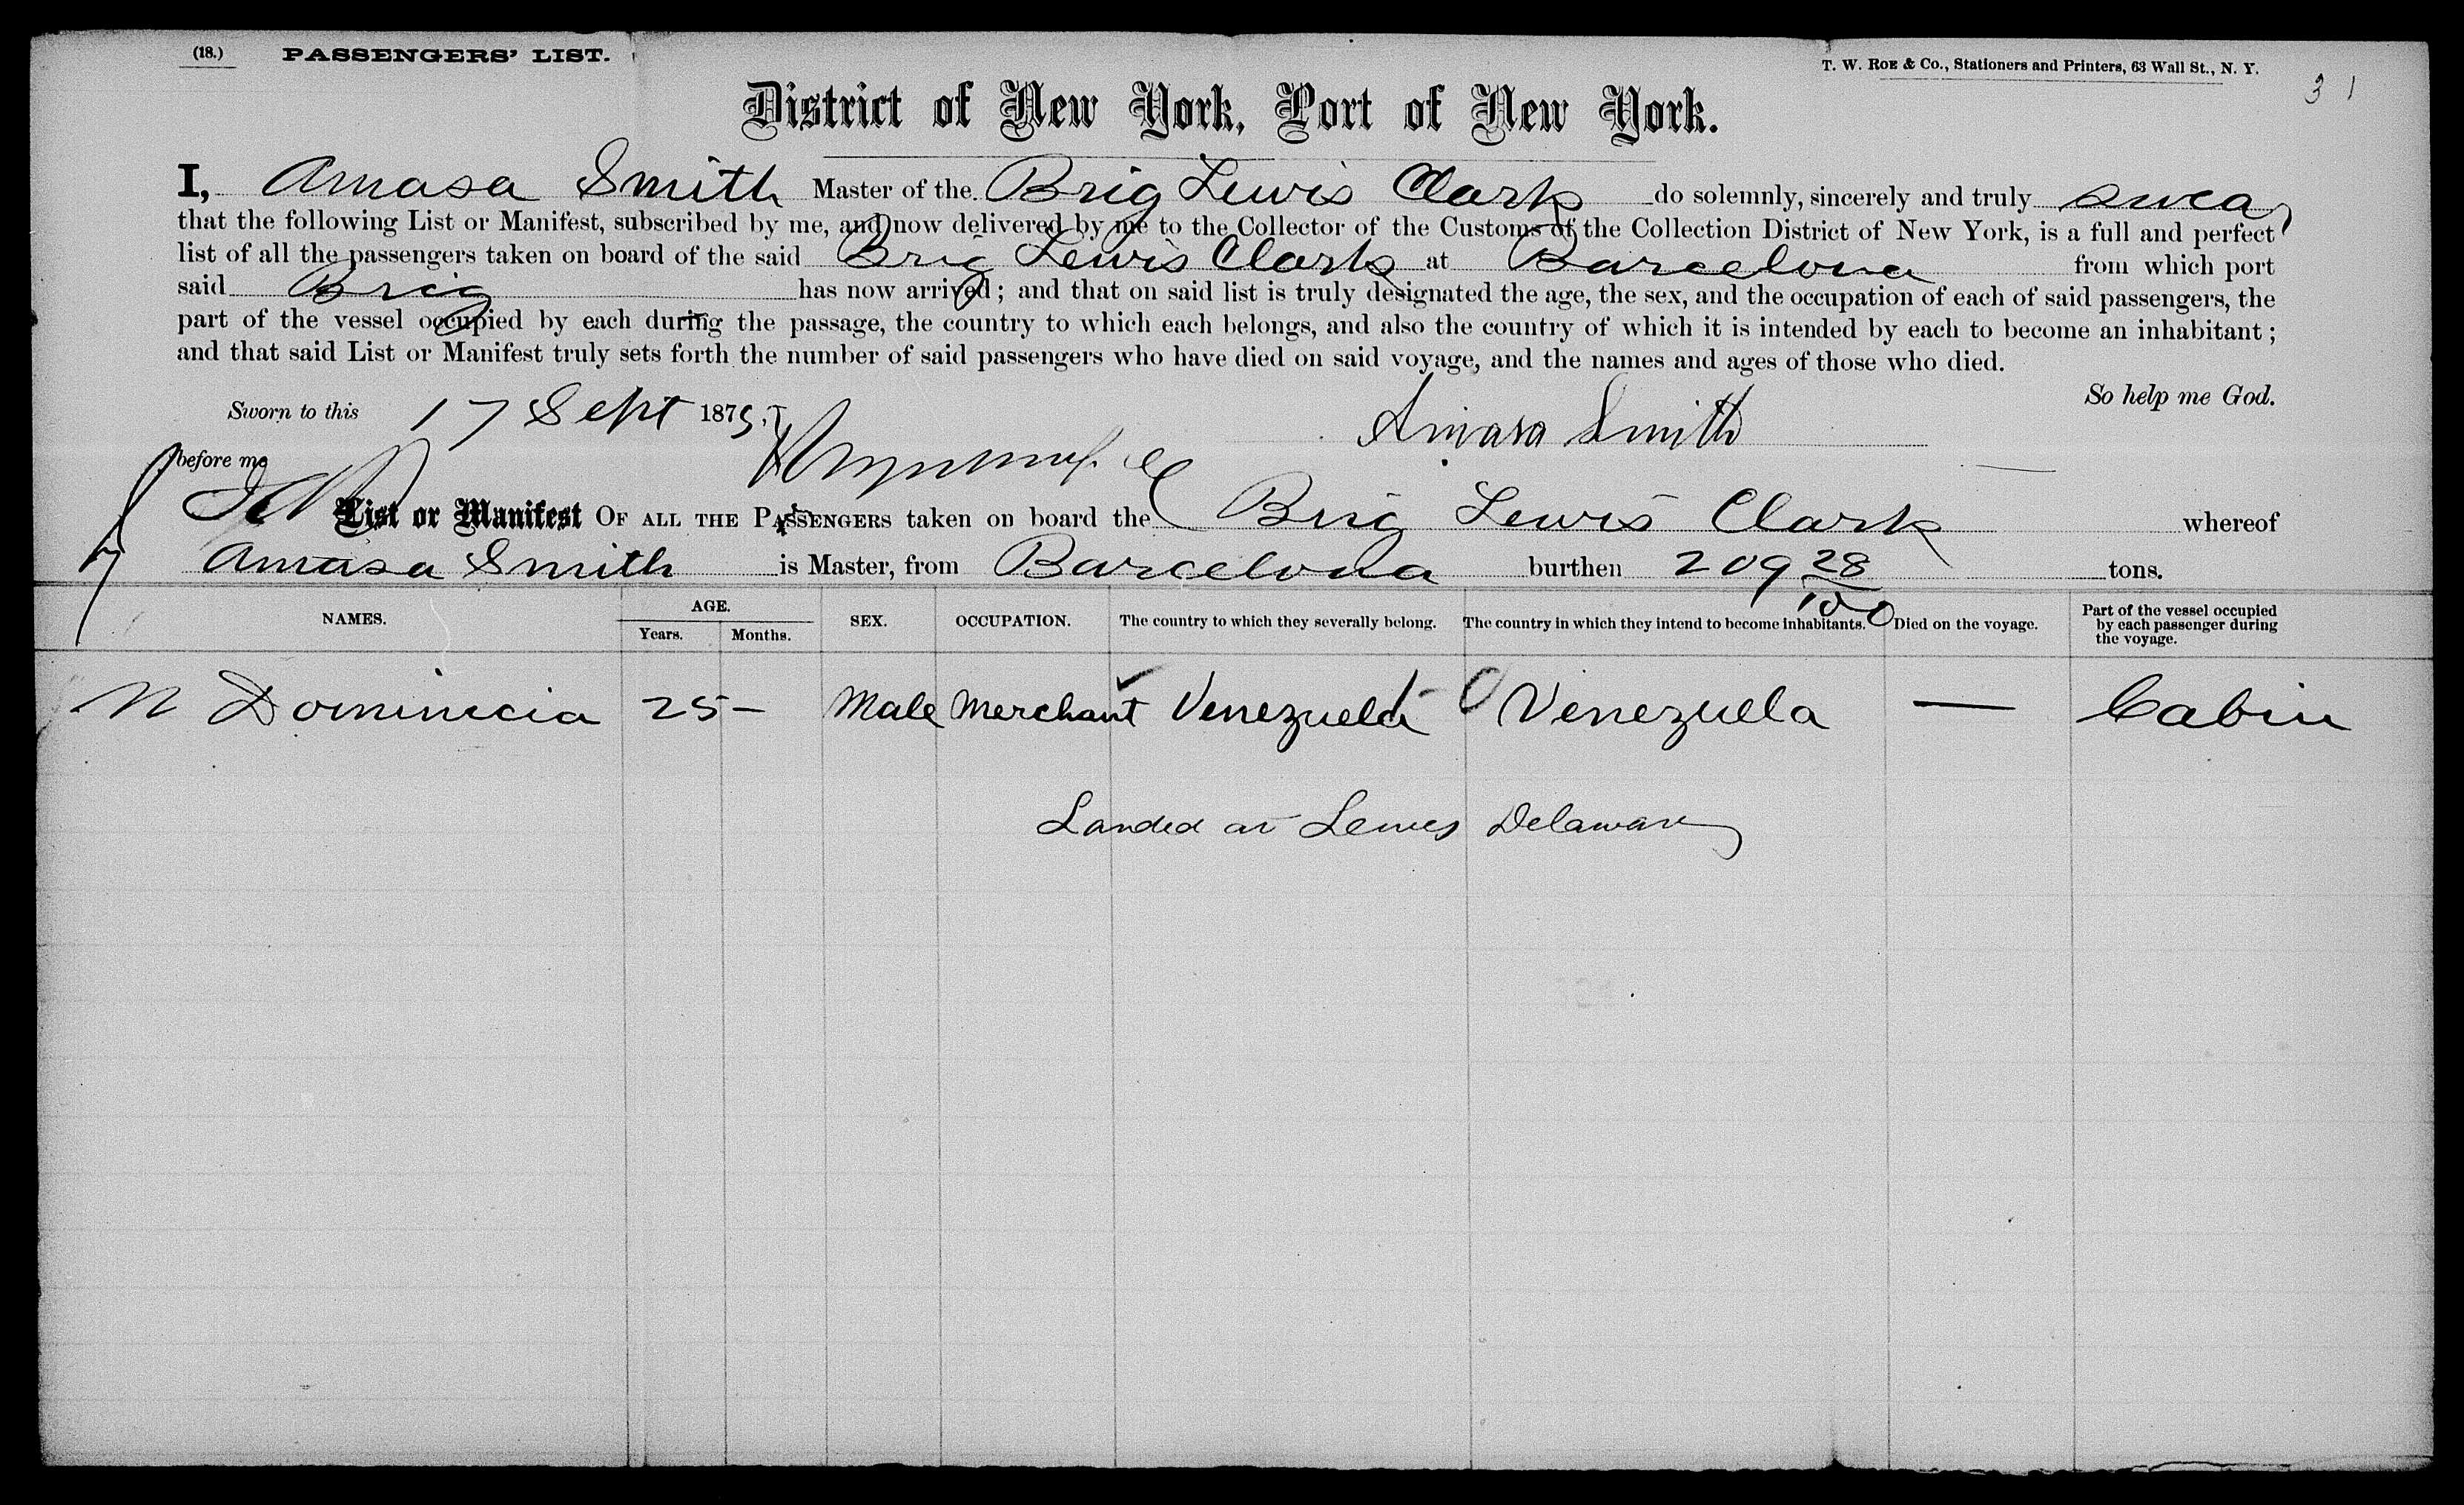 (18.) PASSENGERS' LIST.
T. W. ROE & Co., Stationers and Printers, 63 Wall St., N. Y.
31
District of New York, Port of New York.
I, Amasa Smith Master of the Brig Lewis Clark do solemnly, sincerely and truly swear
that the following List or Manifest, subscribed by me, and now delivered by me to the Collector of the Customs of the Collection District of New York, is a full and perfect
list of all the passengers taken on board of the said Brig Lewis Clark at Barcelona from which port
said Brig has now arrived; and that on said list is truly designated the age, the sex, and the occupation of each of said passengers, the
part of the vessel occupied by each during the passage, the country to which each belongs, and also the country of which it is intended by each to become an inhabitant;
and that said List or Manifest truly sets forth the number of said passengers who have died on said voyage, and the names and ages of those who died.
So help me God.
Sworn to this 17 Sept 1875
Amasa Smith
before me
List or Manifest OF ALL THE PASSENGERS taken on board the Brig Lewis Clark whereof
Amasa Smith is Master, from Barcelona burthen 209 28/100 tons.
NAMES. AGE. Years. Months. SEX. OCCUPATION. The country to which they severally belong. The country in which they intend to become inhabitants. Died on the voyage. Part of the vessel occupied by each passenger during the voyage.
N Dominicia 25 – Male Merchant Venezuela Venezuella — Cabin
Landed at Lewes Delaware